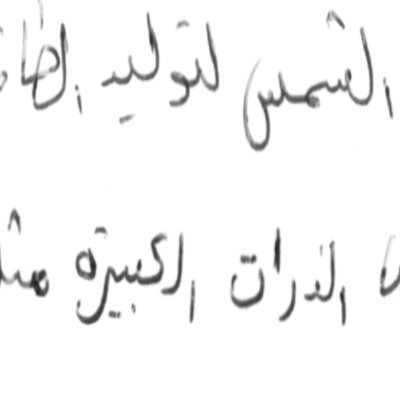 الشمس لتوليد الطا
الذرات الكبيرة مثل